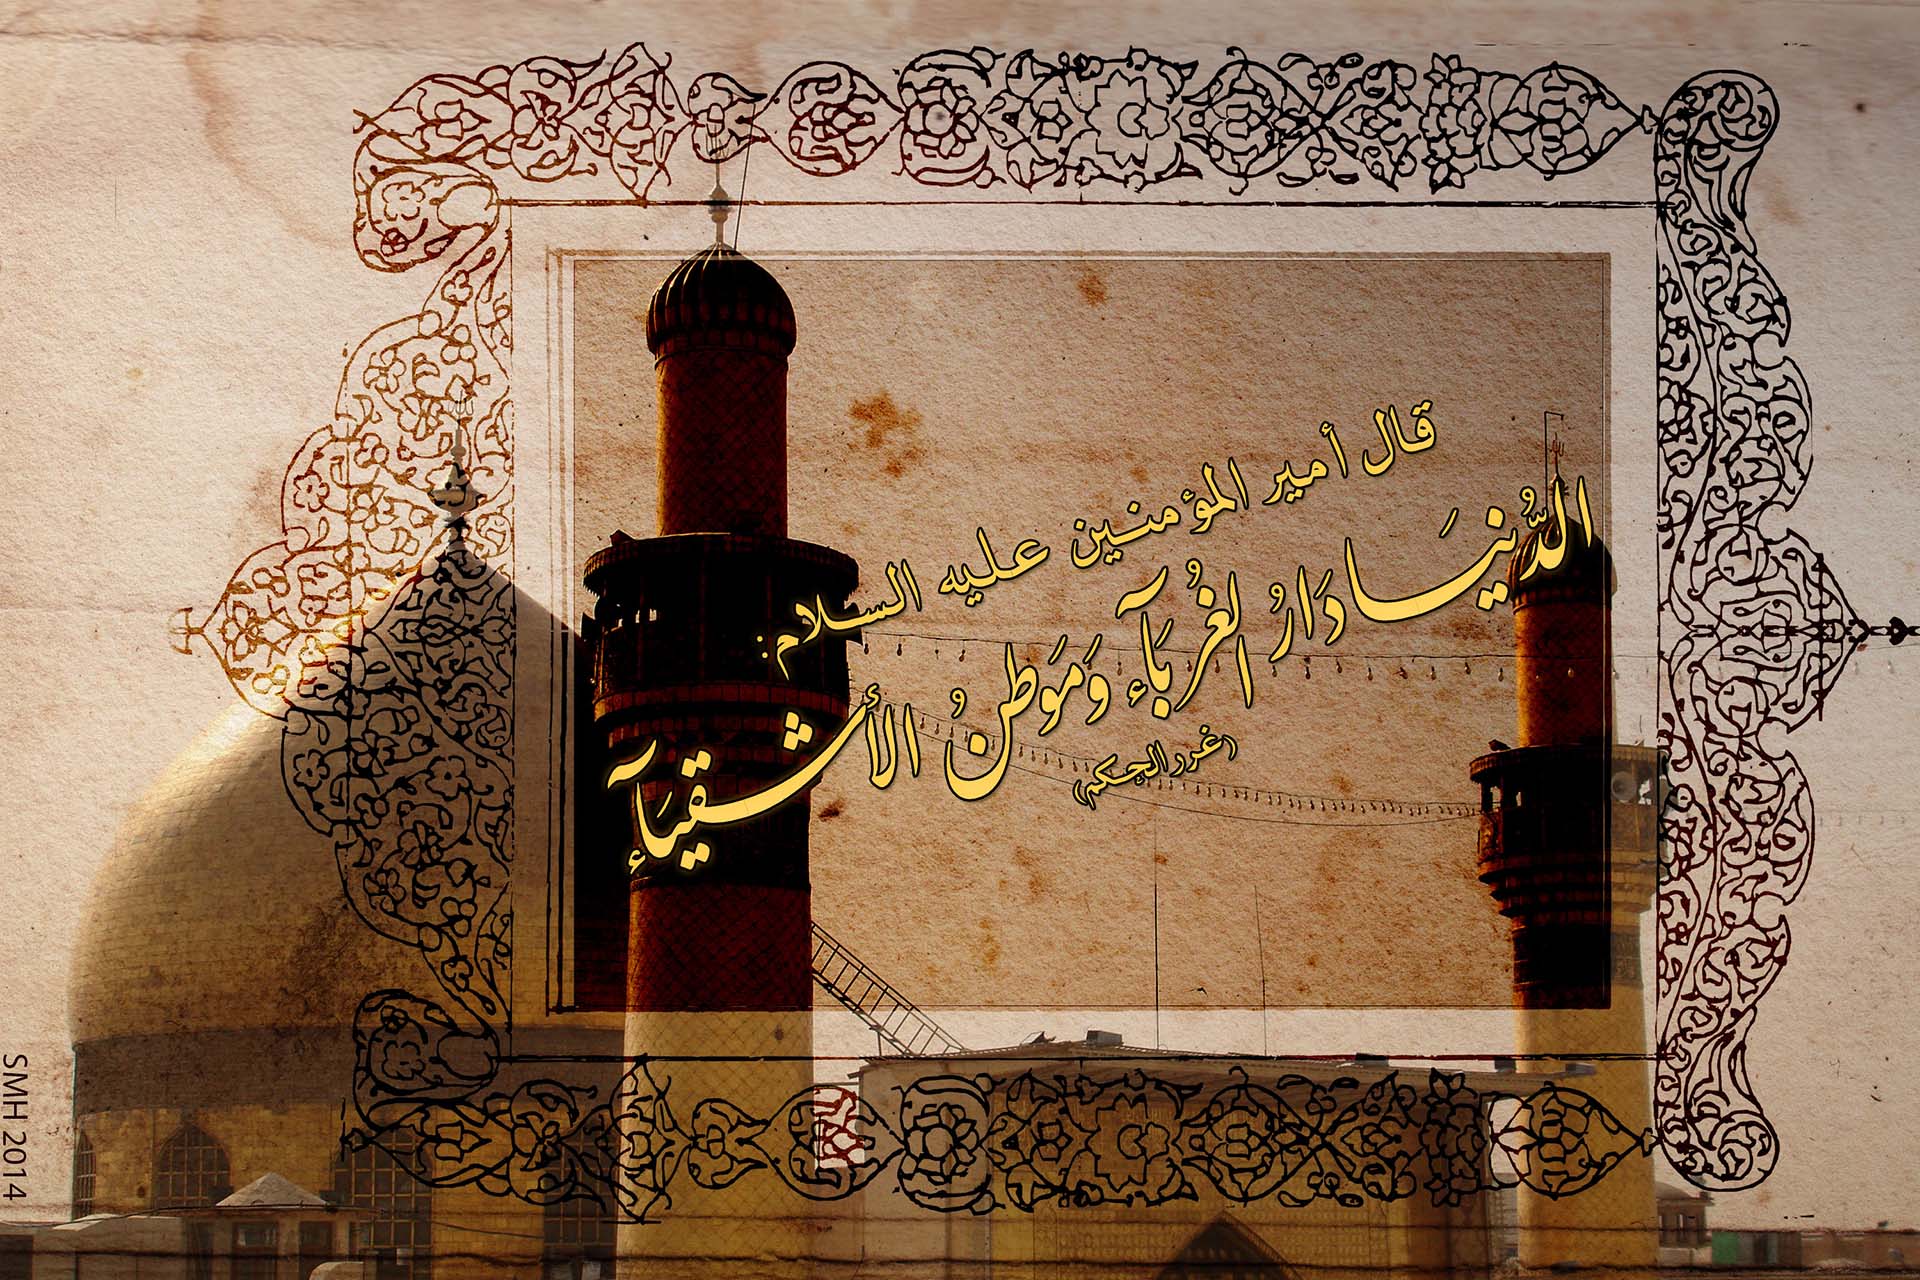 قال أمير المؤمنين عليه السلام:
الدُّنيَا دَارُ الغُربَآء وَمَوَطنُ الأشقيَآء
(غرر الحكم)
SMH 2014